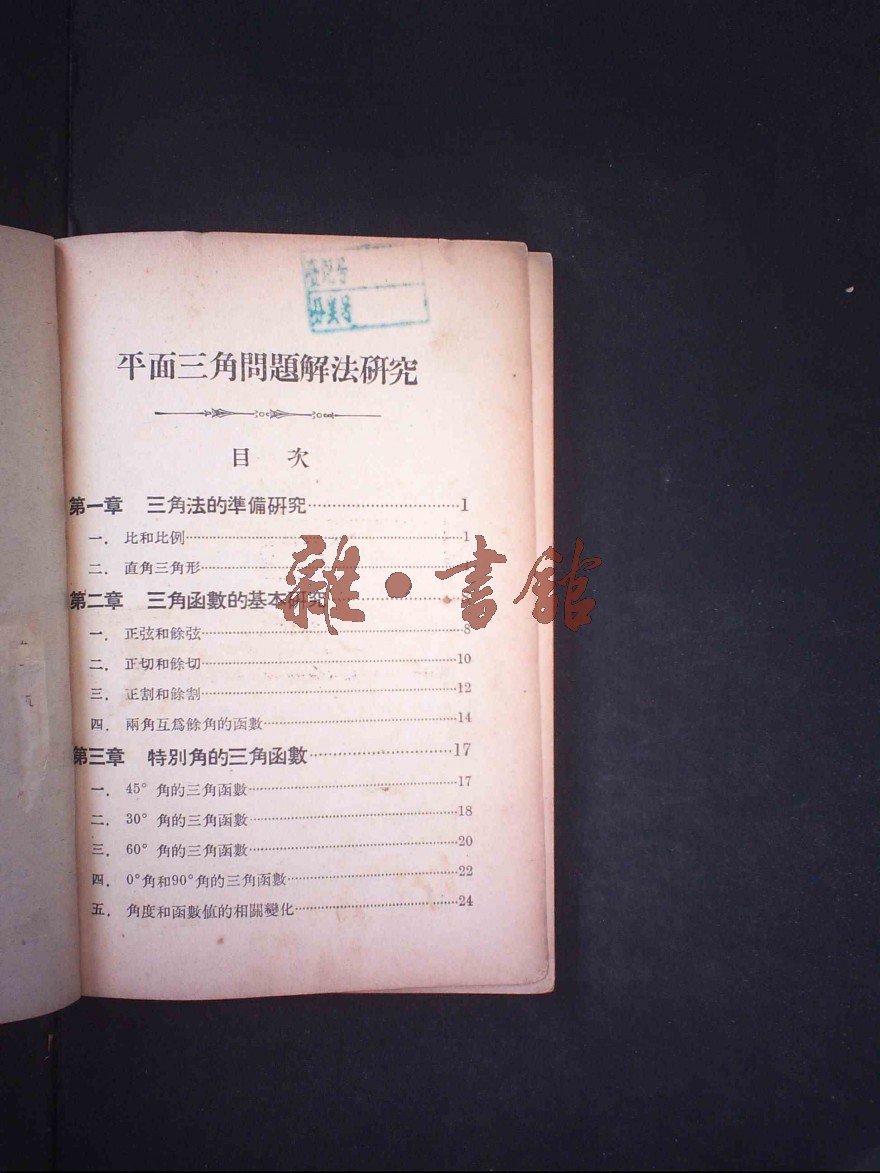 登記号
分类号
平面三角問題解法研究
目 次
第一章 三角法的準備研究……1
一．比和比例……1
二．直角三角形……
第二章 三角函數的基本研究……
一．正弦和餘弦……8
二．正切和餘切……10
三．正割和餘割……12
四．兩角互爲餘角的函數……14
第三章 特別角的三角函數……17
一．45°角的三角函數……17
二．30°角的三角函數……18
三．60°角的三角函數……20
四．0°角和90°角的三角函數……22
五．角度和函數值的相關變化……24
雜·書館